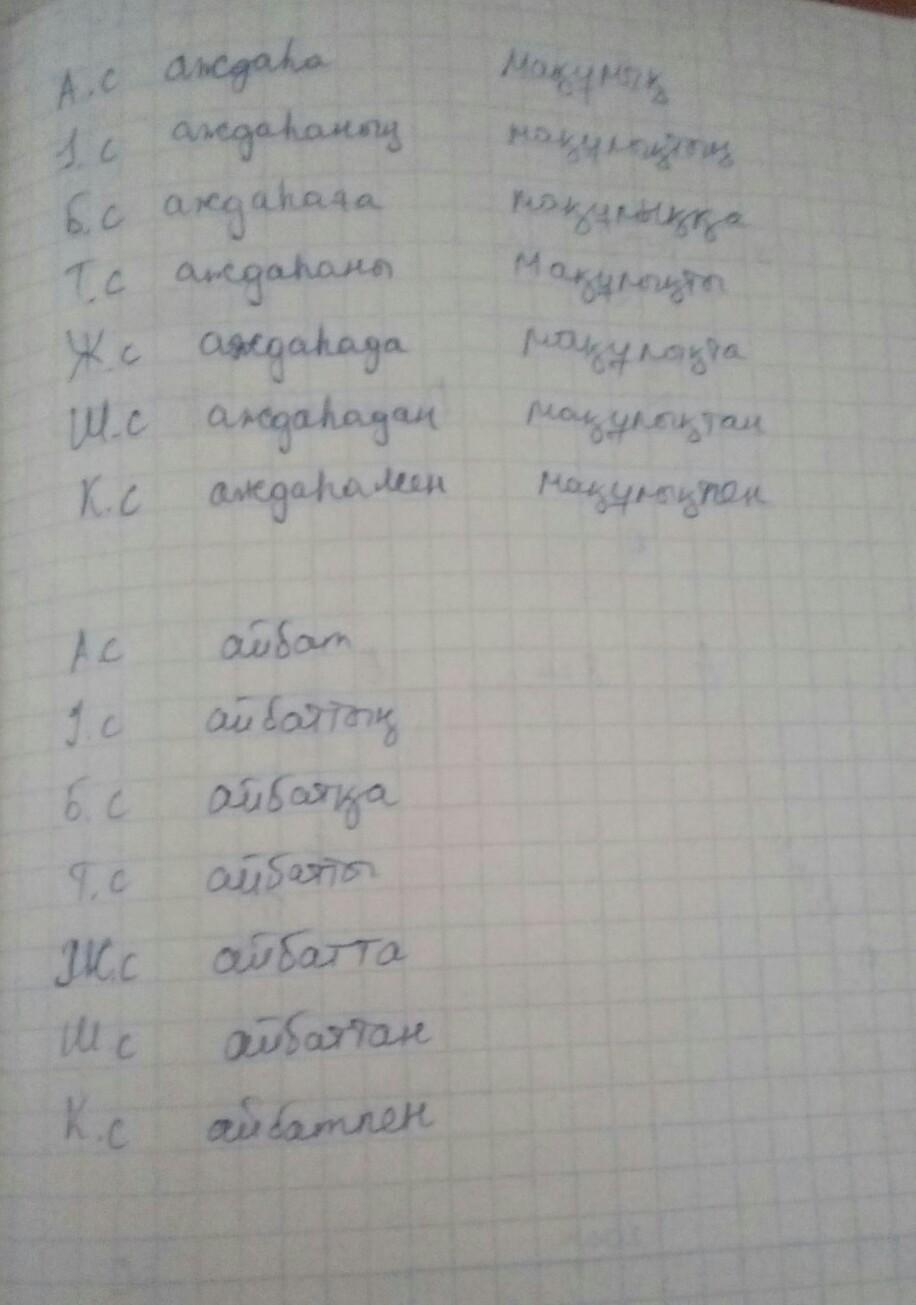 А.с аждаһа мақұлық
І.с аждаһаның мақұлықтың
Б.с аждаһаға мақұлыққа
Т.с аждаһаны мақұлықты
Ж.с аждаһада мақұлықта
Ш.с аждаһадан мақұлықтан
К.с аждаһамен мақұлықпен
А.с айбат
І.с айбаттың
Б.с айбатқа
Т.с айбатты
Ж.с айбатта
Ш с айбаттан
К.с айбатпен